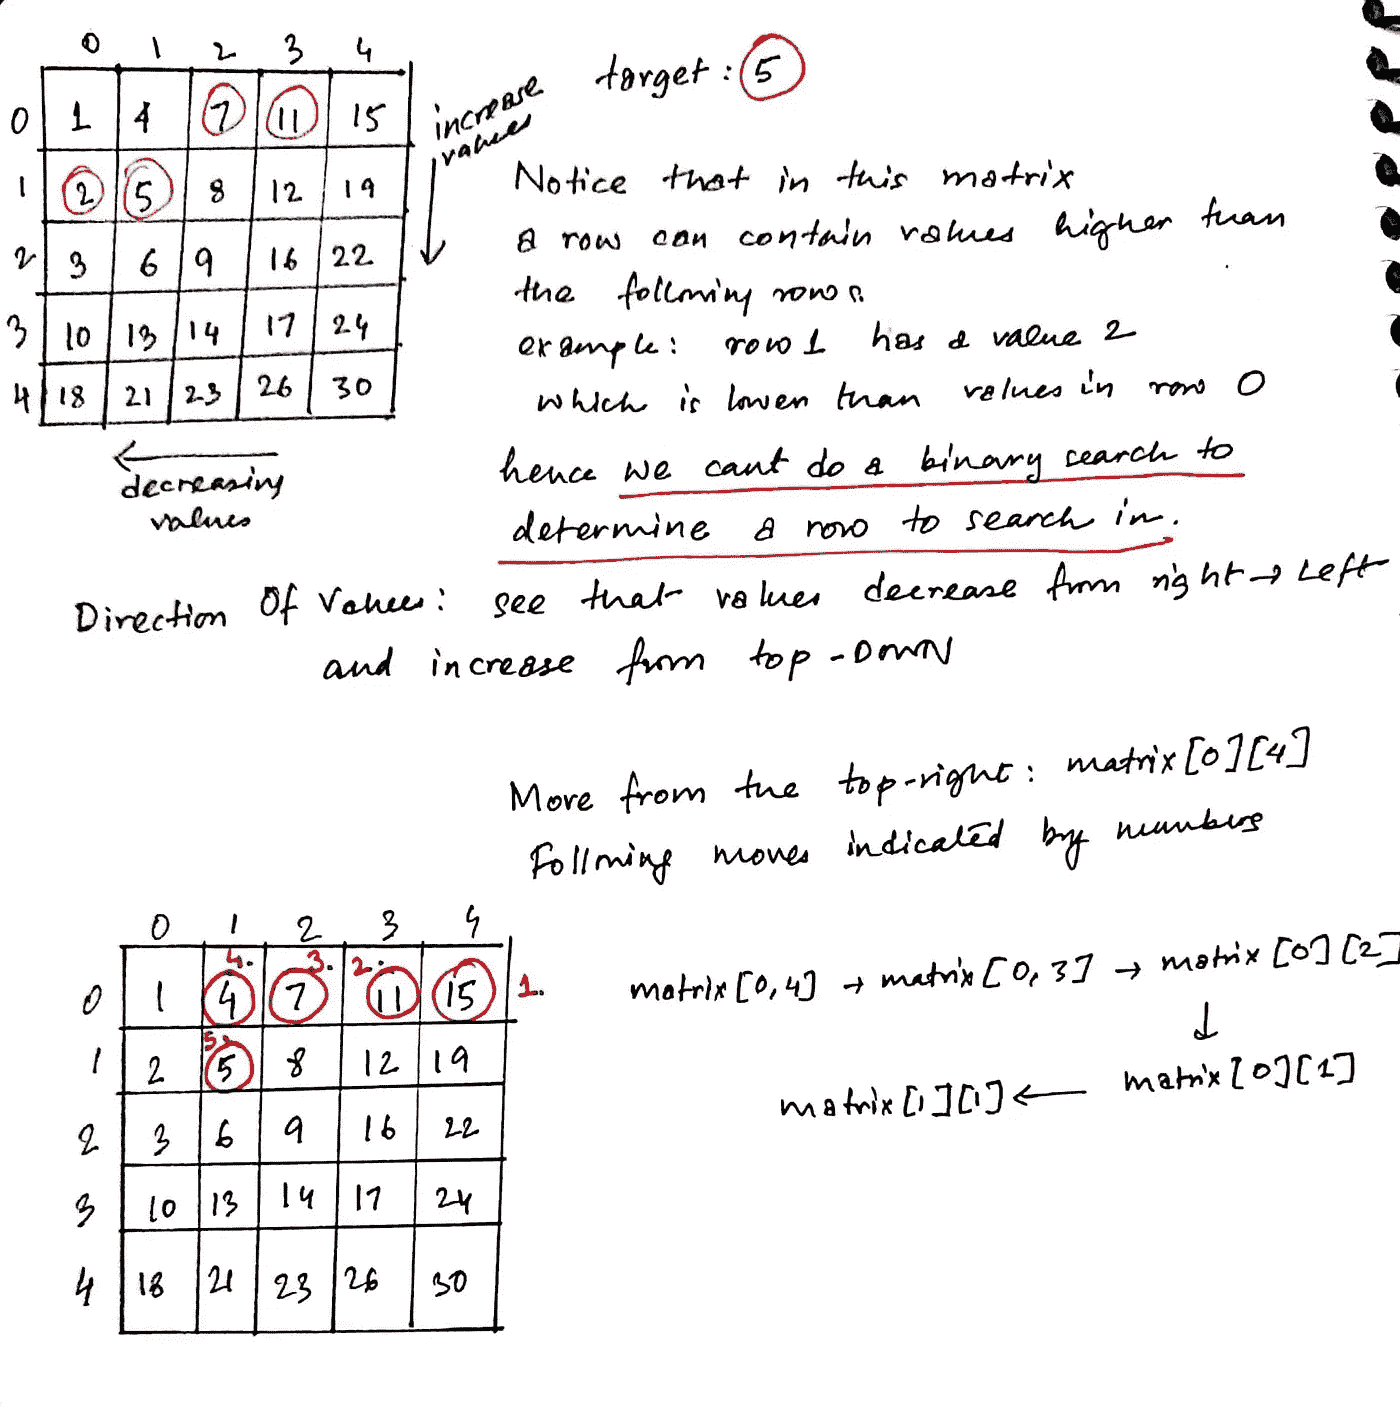 0 1 2 3 4
0 1 4 7 11 15
1 2 5 8 12 19
2 3 6 9 16 22
3 10 13 14 17 24
4 18 21 23 26 30
increase
values
decreasing
values
target: 5
Notice that in this matrix
a row can contain values higher than
the following rows.
example: row 1 has a value 2
which is lower than values in row 0
hence we cant do a binary search to
determine a row to search in.
Direction Of Values: see that values decrease from right → Left
and increase from top-DOWN
Move from the top-right: matrix[0][4]
Following moves indicated by numbers
0 1 2 3 4
4. 3. 2.
0 1 4 7 11 15 1.
5.
1 2 5 8 12 19
2 3 6 9 16 22
3 10 13 14 17 24
4 18 21 23 26 30
matrix[0,4] → matrix[0,3] → matrix[0][2]
↓
matrix[1][1] ← matrix[0][1]